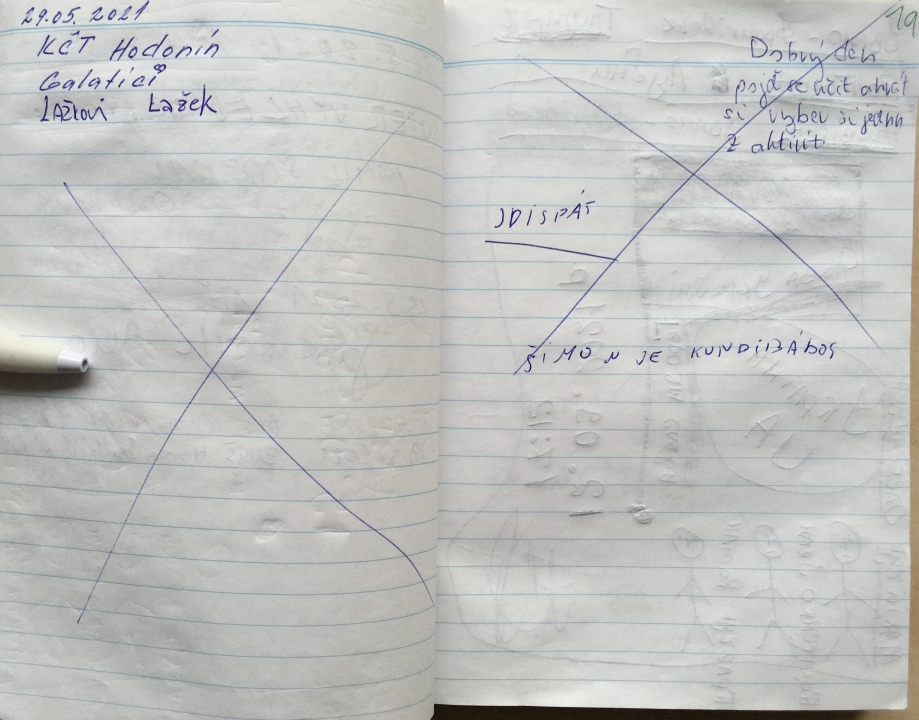 29.05.2021
KČT Hodonín
Galatíci
LAŽkovi Lažek
19
Dobrý den
pojď se učit a hrát
si vyber si jednu
z aktivit
JDI SPÁT
ŠIMON JE KUNDIBÁBOS